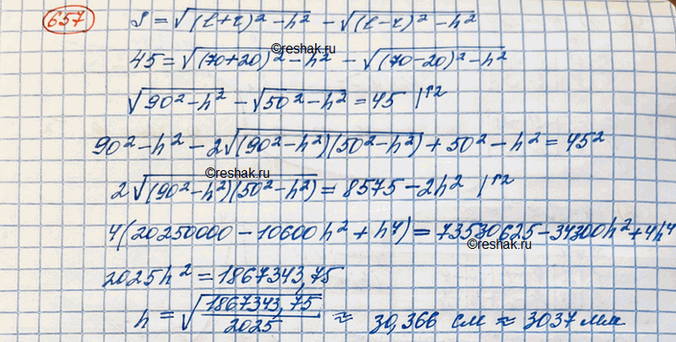 657
S = √(l+r)² − h² − √(l−r)² − h²
©reshak.ru
45 = √(70+20)² − h² − √(70−20)² − h²
√90² − h² − √50² − h² = 45 |↑2
90² − h² − 2√(90² − h²)(50² − h²) + 50² − h² = 45²
©reshak.ru
2√(90² − h²)(50² − h²) = 8575 − 2h² |↑2
4(20250000 − 10600h² + h⁴) = 73530625 − 34300h² + 4h⁴
©reshak.ru
2025h² = 1867343,75
h = √1867343,75/2025 ≈ 30,366 см ≈ 3037 мм